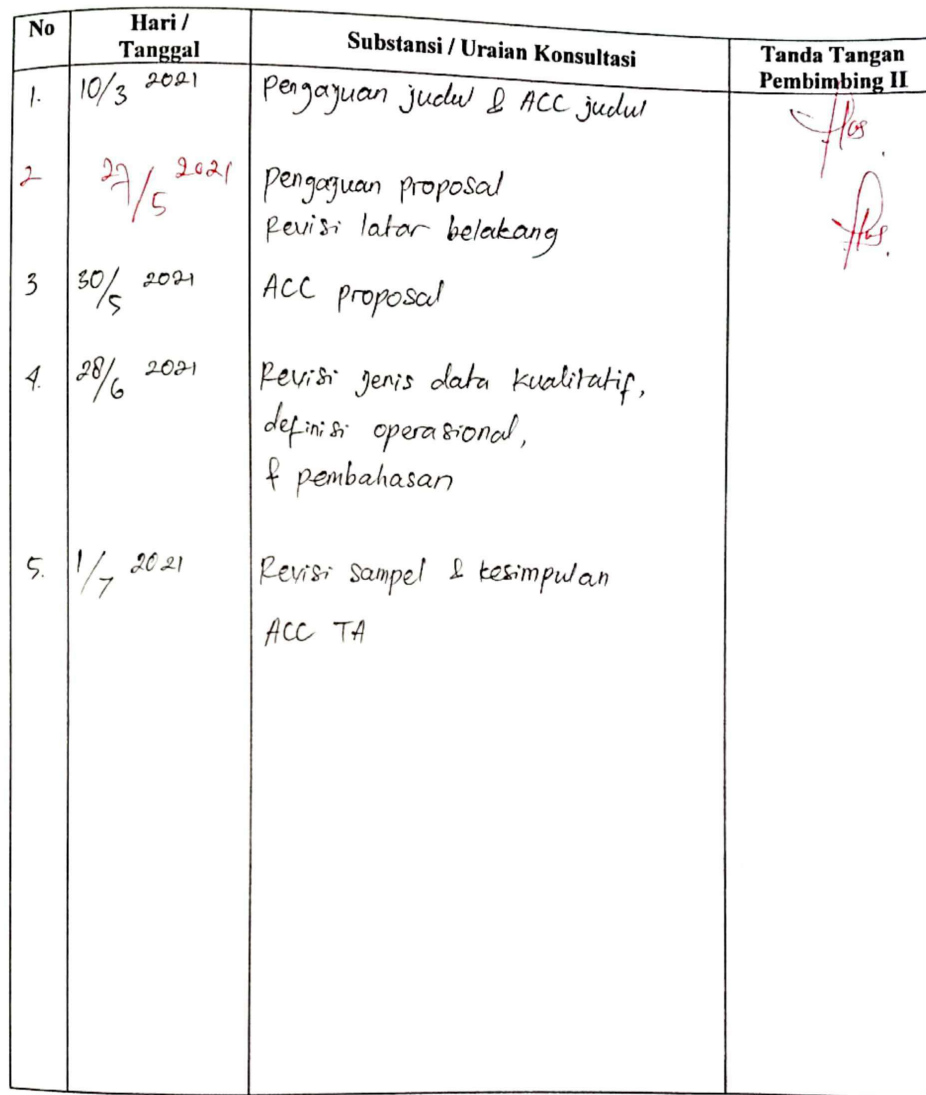 No Hari / Tanggal Substansi / Uraian Konsultasi Tanda Tangan Pembimbing II
1. 10/3 2021 Pengajuan judul & ACC judul
2 27/5 2021 Pengajuan proposal
Revisi latar belakang
3 30/5 2021 ACC proposal
4. 28/6 2021 Revisi jenis data kualitatif,
definisi operasional,
& pembahasan
5. 1/7 2021 Revisi sampel & kesimpulan
ACC TA